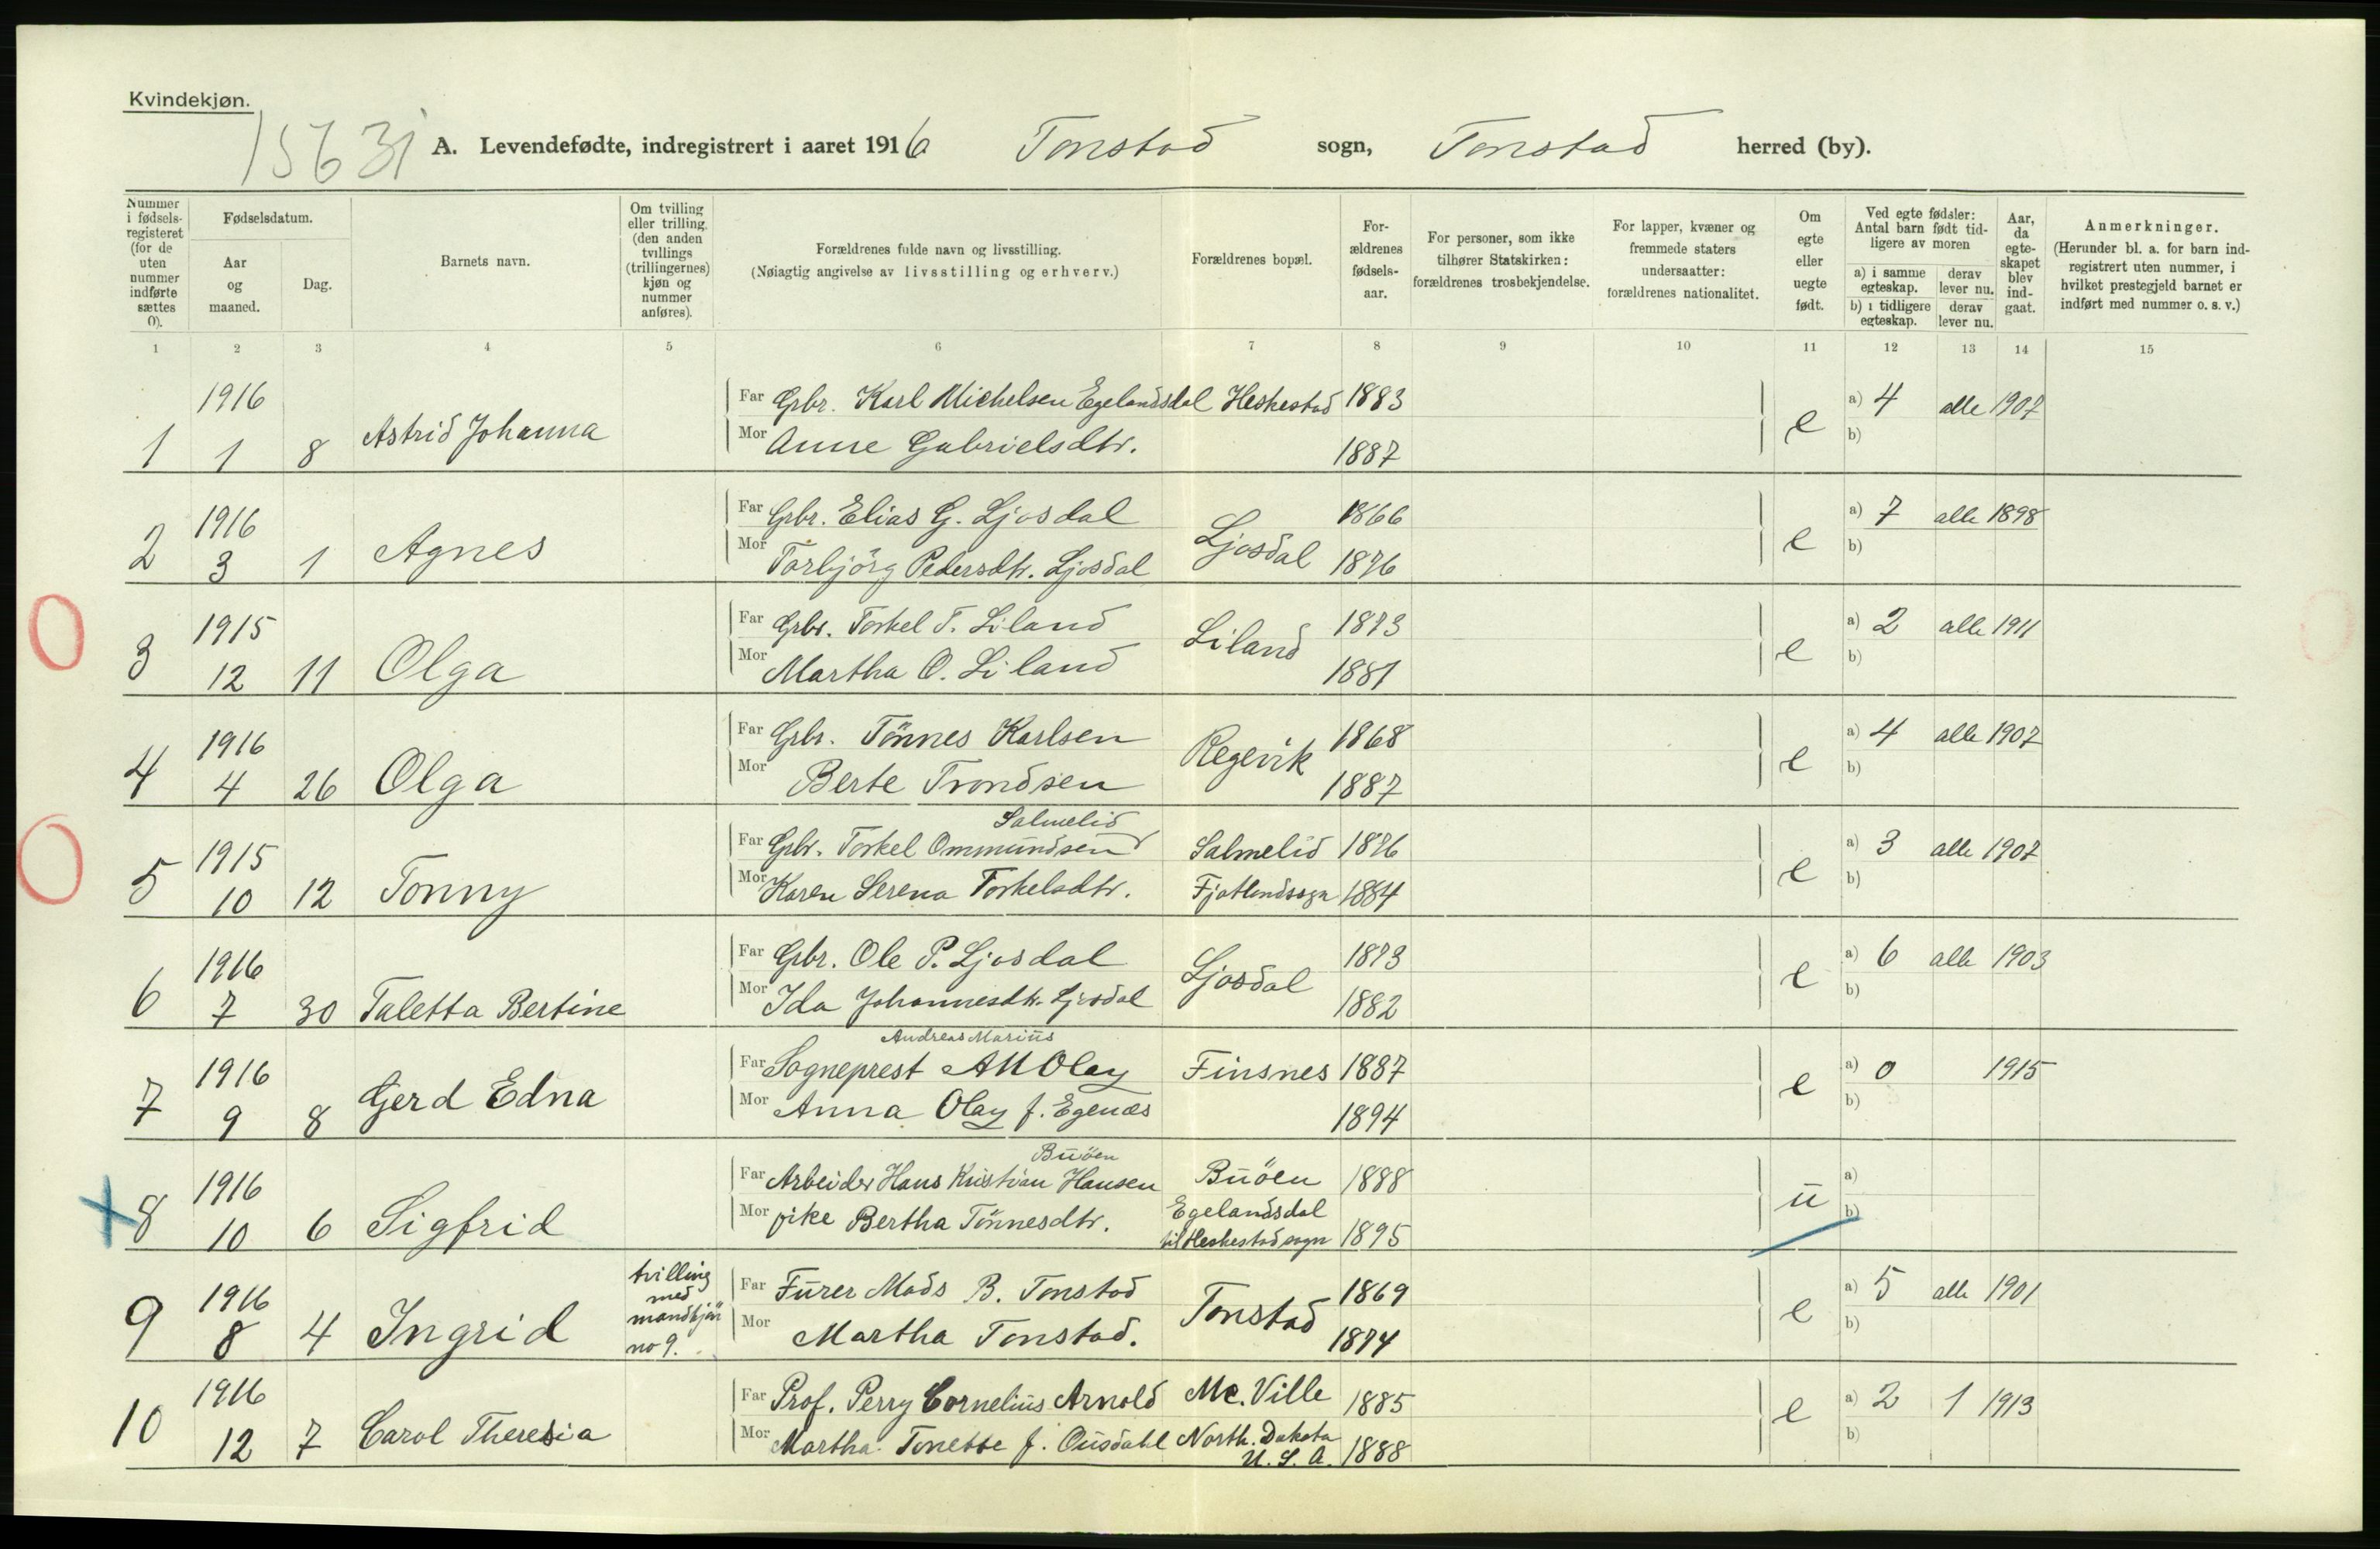 Kvindekjøn.
15631
A. Levendefødte, indregistrert i aaret 1916 Tonstad sogn, Tonstad herred (by).
Nummer i fødsels-registeret (for de uten nummer indførte sættes 0).
Fødselsdatum.
Aar og maaned.
Dag.
Barnets navn.
Om tvilling eller trilling. (den anden tvillings (trillingernes) kjøn og nummer anføres).
Forældrenes fulde navn og livsstilling.
(Nøiagtig angivelse av livsstilling og erhverv.)
Forældrenes bopæl.
For-ældrenes fødsels-aar.
For personer, som ikke tilhører Statskirken: forældrenes trosbekjendelse.
For lapper, kvæner og fremmede staters undersaatter: forældrenes nationalitet.
Om egte eller uegte født.
Ved egte fødsler: Antal barn født tid-ligere av moren
a) i samme egteskap.
derav lever nu.
b) i tidligere egteskap.
derav lever nu.
Aar, da egte-skapet blev ind-gaat.
Anmerkninger.
(Herunder bl. a. for barn ind-registrert uten nummer, i hvilket prestegjeld barnet er indført med nummer o. s. v.)
1 2 3 4 5 6 7 8 9 10 11 12 13 14 15
1916 Far Grbr. Karl Michelsen Egelandsdal Heskestad 1883 a) 4 alle 1907
1 1 8 Astrid Johanna Mor Anne Gabrielsdtr. 1887 e b)
1916 Far Grbr. Elias G. Ljosdal Ljosdal 1866 a) 7 alle 1898
2 3 1 Agnes Mor Torbjörg Pedersdtr. Ljosdal 1876 e b)
1915 Far Grbr. Torkel T. Liland Liland 1873 a) 2 alle 1911
3 12 11 Olga Mor Martha O. Liland 1881 e b)
1916 Far Grbr. Tönnes Karlsen Regevik 1868 a) 4 alle 1907
4 4 26 Olga Mor Berte Trondsen 1887 e b)
Salmelid
1915 Far Grbr. Torkel Ommundsen Salmelid 1876 a) 3 alle 1907
5 10 12 Tonny Mor Karen Serena Torkelsdtr. Fjotlandssogn 1884 e b)
1916 Far Grbr. Ole P. Ljosdal Ljosdal 1873 a) 6 alle 1903
6 7 30 Taletta Bertine Mor Ida Johannesdtr. Ljosdal 1882 e b)
Andreas Marius
1916 Far Sogneprest AM Olay Finsnes 1887 a) 0 1915
7 9 8 Gerd Edna Mor Anna Olay f. Egenæs 1894 e b)
Buöen
1916 Far Arbeider Hans Kristian Hansen Buöen 1888 a)
8 10 6 Sigfrid Mor pike Bertha Tönnesdtr. Egelandsdal til Heskestad sogn 1895 u b)
tvilling med mandkjön no 9.
1916 Far Furer Mads B. Tonstad Tonstad 1869 a) 5 alle 1901
9 8 4 Ingrid Mor Martha Tonstad. 1874 e b)
1916 Far Prof. Perry Cornelius Arnold Mc. Ville 1885 a) 2 1 1913
10 12 7 Carol Theresia Mor Martha Tonette f. Ousdahl North. Dakota U. S. A. 1888 e b)